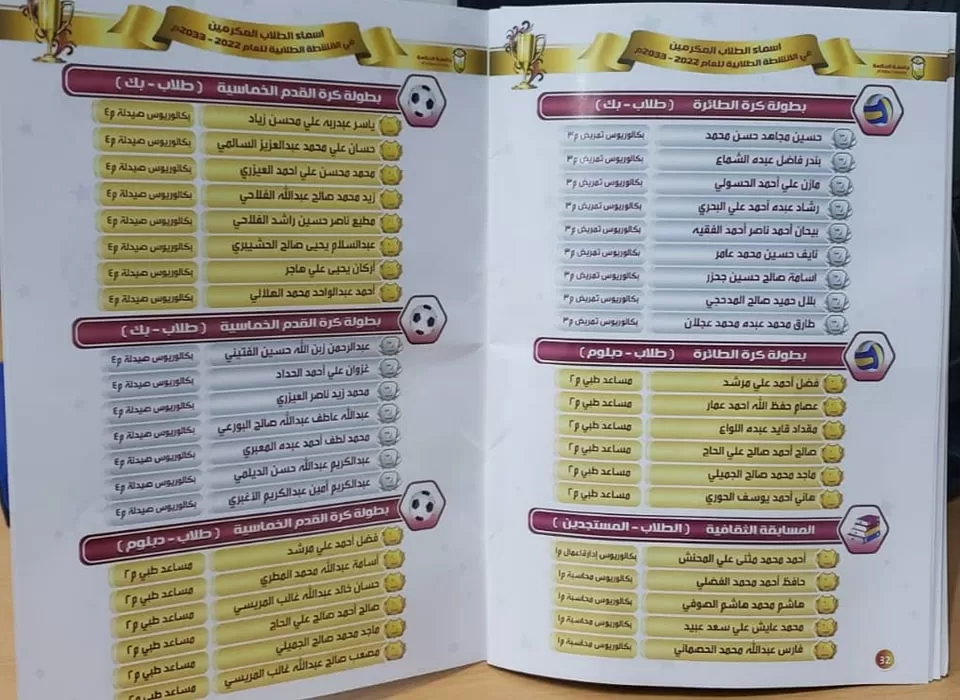 اسماء الطلاب المكرمين
في الأنشطة الطلابية للعام 2022 - 2033م
بطولة كرة الطائرة ( طلاب - بك )
حسين مجاهد حسن محمد بكالوريوس تمريض م٣
بندر فاضل عبده الشماع بكالوريوس تمريض م٣
مازن علي أحمد الحسولي بكالوريوس تمريض م٣
رشاد عبده أحمد علي البحري بكالوريوس تمريض م٣
بيحان أحمد ناصر أحمد الفقيه بكالوريوس تمريض م٣
نايف حسين محمد عامر بكالوريوس تمريض م٣
اسامة صالح حسين جحزر بكالوريوس تمريض م٣
بلال حميد صالح المدحجي بكالوريوس تمريض م٣
طارق محمد عبده محمد عجلان بكالوريوس تمريض م٣
بطولة كرة الطائرة ( طلاب - دبلوم )
فضل أحمد علي مرشد مساعد طبي م٢
عصام حفظ الله احمد عمار مساعد طبي م٢
مقداد قايد عبده اللواع مساعد طبي م٢
صالح أحمد صالح علي الحاج مساعد طبي م٢
ماجد محمد صالح الجميلي مساعد طبي م٢
هاني أحمد يوسف الحوري مساعد طبي م٢
المسابقة الثقافية ( الطلاب - المستجدين )
أحمد محمد مثنى علي المحنش بكالوريوس إدارة اعمال م١
حافظ أحمد محمد الفضلي بكالوريوس محاسبة م١
هاشم محمد هاشم الصوفي بكالوريوس محاسبة م١
محمد عايش علي سعد عبيد بكالوريوس محاسبة م١
فارس عبدالله محمد الحصماني بكالوريوس محاسبة م١
32
اسماء الطلاب المكرمين
في الأنشطة الطلابية للعام 2022 - 2033م
بطولة كرة القدم الخماسية ( طلاب - بك )
ياسر عبدربه علي محسن زياد بكالوريوس صيدلة م٤
حسان علي محمد عبدالعزيز السالمي بكالوريوس صيدلة م٤
محمد محسن علي احمد العيزري بكالوريوس صيدلة م٤
زيد محمد صالح عبدالله الفلاحي بكالوريوس صيدلة م٤
مطيع ناصر حسين راشد الفلاحي بكالوريوس صيدلة م٤
عبدالسلام يحيى صالح الحشيبري بكالوريوس صيدلة م٤
أركان يحيى علي هاجر بكالوريوس صيدلة م٤
أحمد عبدالواحد محمد الهلالي بكالوريوس صيدلة م٤
بطولة كرة القدم الخماسية ( طلاب - بك )
عبدالرحمن زبن الله حسين الفتيني بكالوريوس صيدلة م٤
غزوان علي أحمد الحداد بكالوريوس صيدلة م٤
محمد زيد ناصر العيزري بكالوريوس صيدلة م٤
عبدالله عاطف عبدالله صالح البورعي بكالوريوس صيدلة م٤
محمد لطف أحمد عبده المعبري بكالوريوس صيدلة م٤
عبدالكريم عبدالله حسن الديلمي بكالوريوس صيدلة م٤
عبدالكريم أمين عبدالكريم الاغبري بكالوريوس صيدلة م٤
بطولة كرة القدم الخماسية ( طلاب - دبلوم )
فضل أحمد علي مرشد مساعد طبي م٢
أسامة عبدالله محمد المطري مساعد طبي م٢
حسان خالد عبدالله غالب المريسي مساعد طبي م٢
صالح أحمد صالح علي الحاج مساعد طبي م٢
ماجد محمد صالح الجميلي مساعد طبي م٢
مصعب صالح عبدالله غالب المريسي مساعد طبي م٢